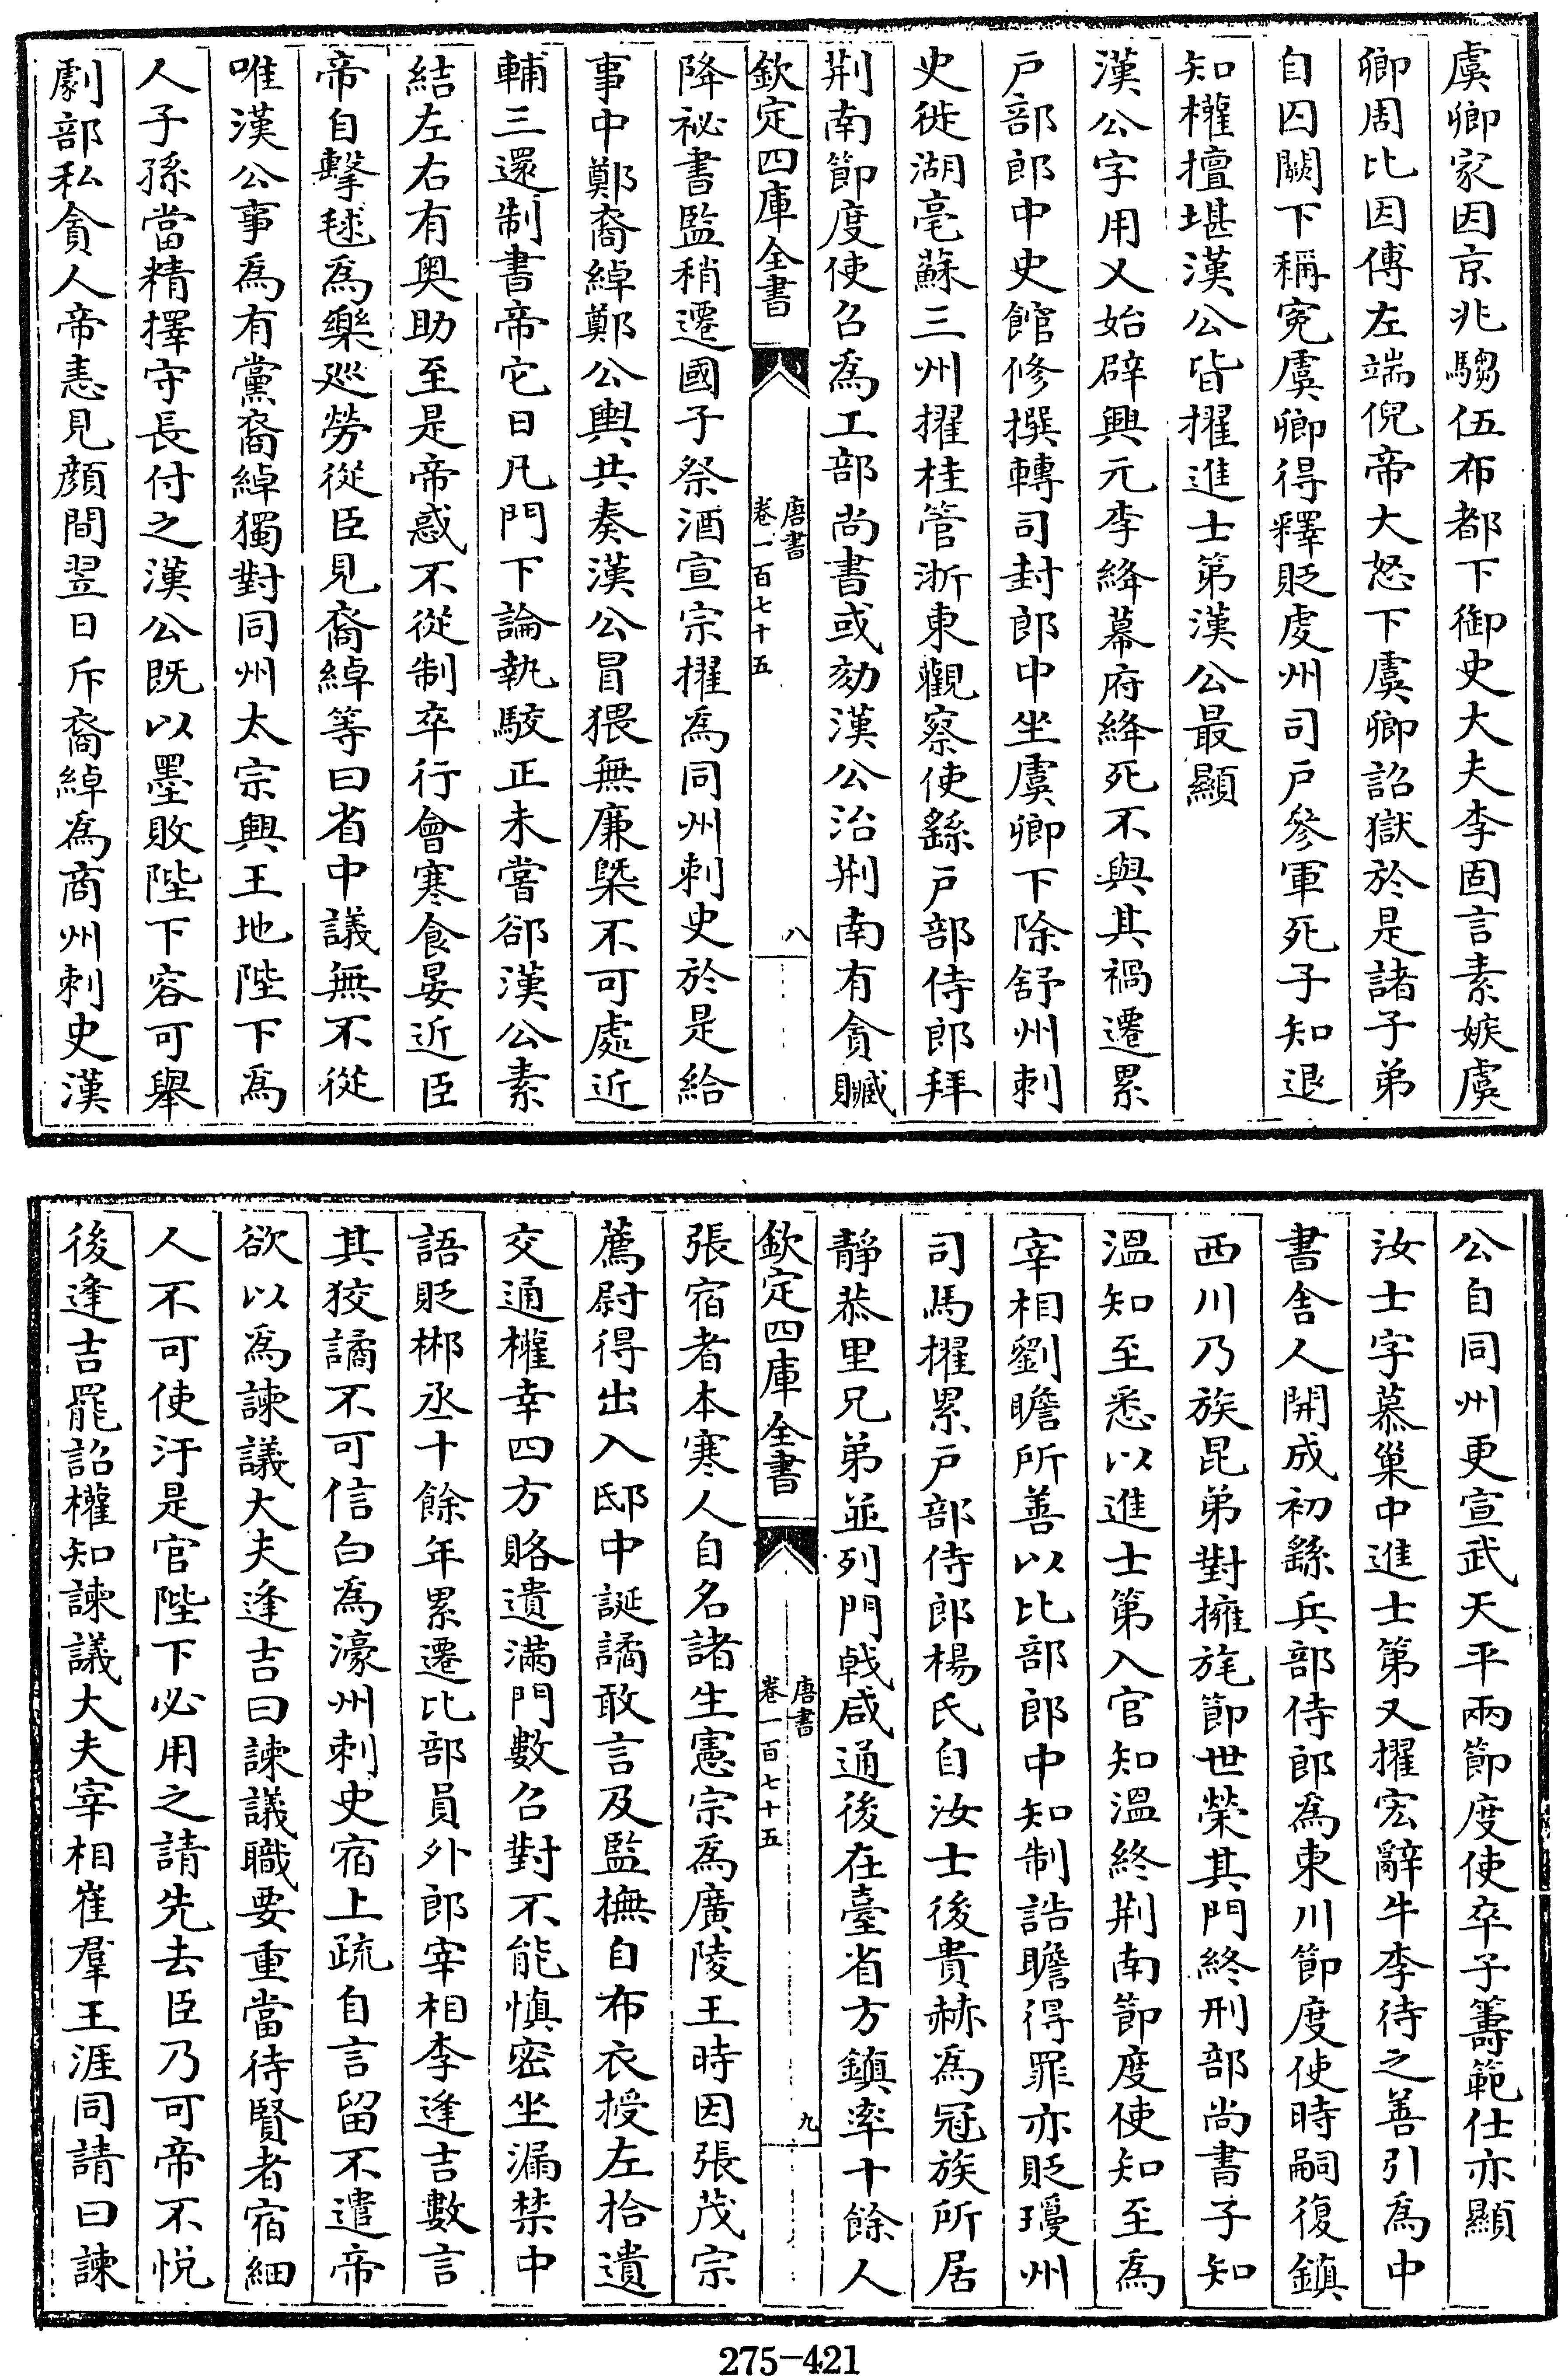 虞卿家因京兆騶伍布都下御史大夫李固言素嫉虞
卿周比因傅左端倪帝大怒下虞卿詔獄於是諸子弟
自囚闕下稱寃虞卿得釋貶虔州司戶參軍死子知退
知權擅堪漢公皆擢進士第漢公最顯
漢公字用乂始辟興元李絳幕府絳死不與其禍遷累
戶部郎中史館修撰轉司封郎中坐虞卿下除舒州刺
史徙湖亳蘇三州擢桂管浙東觀察使繇戶部侍郎拜
荆南節度使召爲工部尚書或劾漢公治荆南有貪贓
欽定四庫全書
唐書
卷一百七十五
八
降祕書監稍遷國子祭酒宣宗擢爲同州刺史於是給
事中鄭裔綽鄭公輿共奏漢公冒猥無廉槩不可處近
輔三還制書帝它日凡門下論執駮正未嘗郤漢公素
結左右有奥助至是帝惑不從制卒行會寒食宴近臣
帝自擊毬爲樂巡勞從臣見裔綽等曰省中議無不從
唯漢公事爲有黨裔綽獨對同州太宗興王地陛下爲
人子孫當精擇守長付之漢公既以墨敗陛下容可舉
劇部私貪人帝恚見顔間翌日斥裔綽爲商州刺史漢
公自同州更宣武天平兩節度使卒子籌範仕亦顯
汝士字慕巢中進士第又擢宏辭牛李待之善引爲中
書舍人開成初繇兵部侍郎爲東川節度使時嗣復鎮
西川乃族昆弟對擁旄節世榮其門終刑部尚書子知
溫知至悉以進士第入官知溫終荆南節度使知至爲
宰相劉瞻所善以比部郎中知制誥瞻得罪亦貶瓊州
司馬擢累戶部侍郎楊氏自汝士後貴赫爲冠族所居
靜恭里兄弟並列門戟咸通後在臺省方鎮率十餘人
欽定四庫全書
唐書
卷一百七十五
九
張宿者本寒人自名諸生憲宗爲廣陵王時因張茂宗
薦尉得出入邸中誕譎敢言及監撫自布衣授左拾遺
交通權幸四方賂遺滿門數召對不能慎密坐漏禁中
語貶郴丞十餘年累遷比部員外郎宰相李逢吉數言
其狡譎不可信白爲濠州刺史宿上疏自言留不遣帝
欲以爲諫議大夫逢吉曰諫議職要重當待賢者宿細
人不可使汙是官陛下必用之請先去臣乃可帝不悅
後逢吉罷詔權知諫議大夫宰相崔羣王涯同請曰諫
275-421